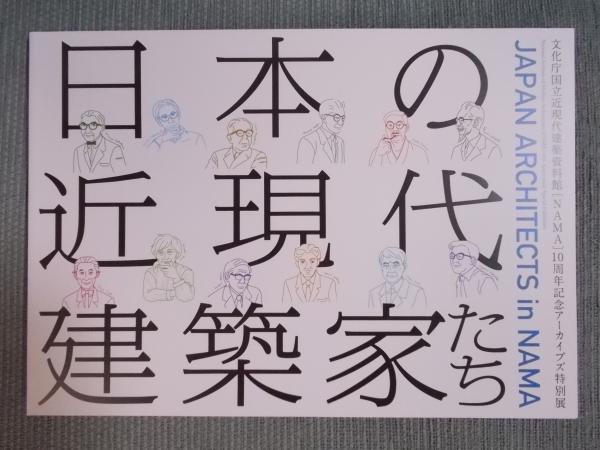 日本の
近現代
建築家たち
JAPAN ARCHITECTS in NAMA
文化庁国立近現代建築資料館[NAMA]10周年記念アーカイブズ特別展